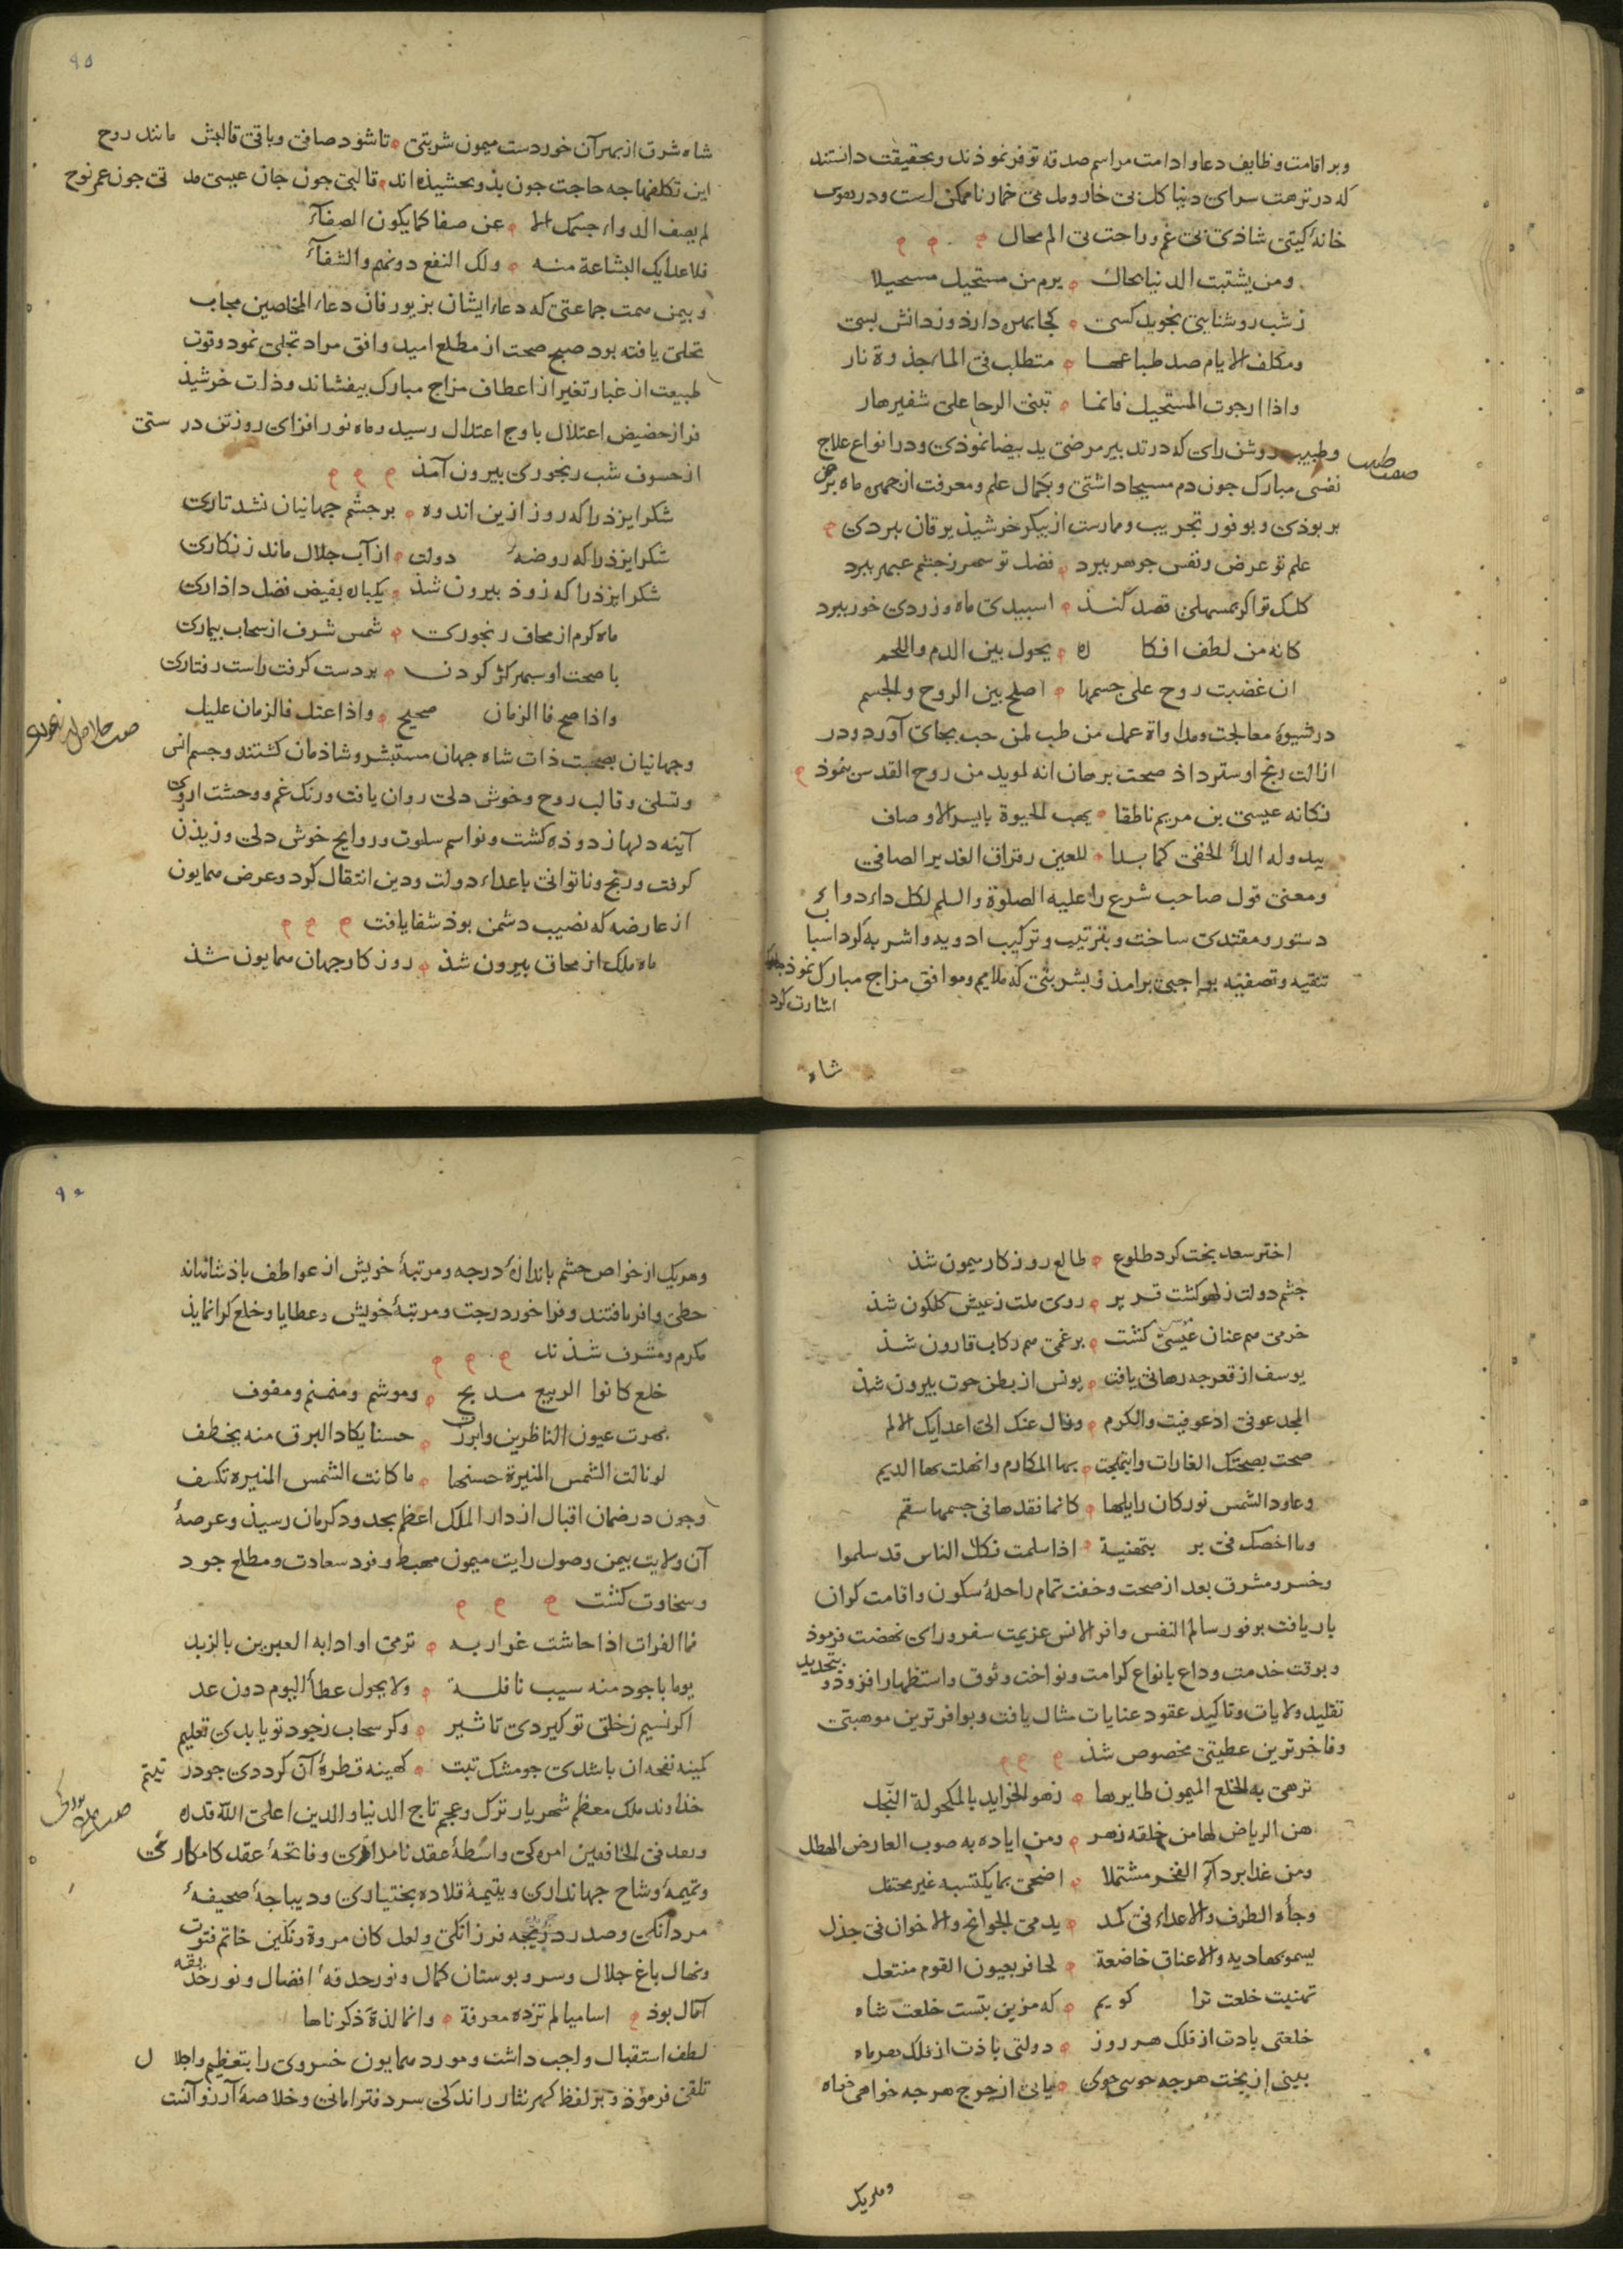 وبر اقامت وظایف دعا و ادامت مراسم صدقه توفر نموذند و بحقیقت دانستند
که در نزهت سرای دنیا کل بی خار و مل بی خمار ناممکن است و در هوس
خانهٔ کیتی شاذی بی غم و راحت بی الم محال
ومن یشتبت الدنیا بحالک یرم من مستحیل مستحیلا
ز شب روشنایی نجوید کسی کجا بهره دارد ز دانش بسی
ومکلف الایام ضد طباعها متطلب فی الماء جذوة نار
واذا رجوت المستحیل فانما تبنی الرجا علی شفیر هار
وطبیب روشن رای که در تدبیر مرضی ید بیضا نموذی و در انواع علاج
صفت طبیب
نفسی مبارک جون دم مسیحا داشتی و بکمال علم و معرفت از چهره ماه برص
بر بوذی و بوفور تجریب و ممارست از پیکر خرشیذ یرقان ببردی
علم تو عرض ز نفس جوهر ببرد فضل تو سهر ز جشم عبهر ببرد
کلک تو اکر بمسهلی قصد کنذ اسپیدی ماه و زردی خور ببرد
کانه من لطف افکاره یجول بین الدم واللحم
ان غضبت روح علی جسمها اصلح بین الروح والجسم
در شیوهٔ معالجت و مداواة عمل من طب لمن حب بجای آورد و در
ازالت رنج و استرداذ صحت برهان انه لموید من روح القدس بنموذ
فکانه عیسی بن مریم ناطقا یهب الحیوة بایسر الاوصاف
یبدو له الداء الخفی کما بدا للعین رقراق الغدیر الصافی
ومعنی قول صاحب شرع را علیه الصلوة والسلم لکل داء دواء
دستور و مقتدی ساخت و بترتیب و ترکیب ادویه و اشربه کرد اسباب
تنقیه و تصفیه بواجبی برامذ و بشربتی که ملایم و موافق مزاج مبارک نموذ
اشارت کرد
شاه
۹۵
شاه شرق از بهر آن خورد ست میمون شربتی تا شود صافی و باقی قالبش مانند روح
این تکلفها جه حاجت جون بذو بخشیذه اند قالبی جون جان عیسی مد تی جون عمر نوح
لم یصف الدواء جسمک الا عن صفا کما یکون الصفاء
فلاعدایک البشاعة منه ولک النفع دونهم والشفاء
و بیمن همت جماعتی که دعاء ایشان بزیور فان دعاء المخلصین مجاب
تحلی یافته بود صبح صحت از مطلع امید وافق مراد تجلی نمود و قوت
طبیعت از غبار تغیر از اعطاف مزاج مبارک بیفشاند و ذات خرشید
فر از حضیض اعتلال باوج اعتدال رسید و ماه نور افزای روز تن در ستی
از خسوف شب رنجوری بیرون آمذ
شکر ایزذ را که روز ازین اندوه بر جشم جهانیان نشد تاری
شکر ایزذ را که روضه دولت از آب جلال ماند زنکاری
شکر ایزذ را که زوذ بیرون شذ یکباره بفیض فضل داذاری
ماه کرم از محاق رنجوری شمس شرف از سحاب بیماری
با صحت او سپهر کژ کردن بر دست کرفت راست رفتاری
واذا صح فالزمان صحیح واذا عتل فالزمان علیل
وجهانیان بصحت ذات شاه جهان مستبشر و شاذمان کشتند و جسم انس
وتسلی و قالب روح و خوش دلی روان یافت و رنک غم و وحشت از روی
آینه دلها زدوذه کشت و نواسم سلوت و روایح خوش دلی وزیذن
کرفت و رنج و ناتوانی باعداء دولت و دین انتقال کرد و عرض همایون
از عارضه که نصیب دشمن بوذ شفا یافت
ماه ملک از محاق بیرون شذ روز کار جهان همایون شذ
اختر سعد بخت کرد طلوع طالع روزکار میمون شذ
جشم دولت ز لهو کشت قریر روی ملت ز عیش کلکون شذ
خرمی هم عنان عیسی کشت بر غمی هم رکاب قارون شذ
یوسف از قعر جه رهائی یافت یونس از بطن حوت بیرون شذ
المجد عوفی اذ عوفیت والکرم وزال عنک الی اعدایک الالم
صحت بصحتک الغارات وابتهجت بها المکارم وانهلت بها الدیم
وعاود الشمس نور کان زایلها کانما فقدها فی جسمها سقم
وما اخصک فی برء بتهنیة اذا سلمت فکل الناس قد سلموا
وخسرو مشرق بعد از صحت و خفت تمام راحلهٔ سکون و اقامت کران
بار یافت بر فور سالم النفس وافر الانس عزیمت سفر و رای نهضت فرموذ
و بوقت خدمت وداع بانواع کرامت و نواخت وثوق و استظهار افزوذ و بتجدید
تقلید ولایات و تاکید عقود عنایات مثال یافت و بوافر ترین موهبتی
وفاخر ترین عطیتی مخصوص شذ
تزهی به الخلع المیمون طایرها زهو الخراید بالمکحولة النجل
هن الریاض لها من خلقه زهر ومن ایاده به صوب العارض الهطل
ومن غدا برداء الفخر مشتملا اضحی بما یکتسبه غیر محتفل
وجاه الطرف والاعداء فی کمد یدمی الجوانح والاخوان فی جذل
یسمو بهادیه والاعناق خاضعة لحافر بعیون القوم منتعل
تهنیت خلعت ترا کویم که مزین بتست خلعت شاه
خلعتی باذت از فلک هر روز دولتی باذت از ملک هر ماه
بینی از بخت هرجه جوی یابی از جرخ هرجه خواهی خواه
وهریک
وهریک از خواص حشم باندازهٔ درجه و مرتبهٔ خویش از عواطف باذشاهانه
حظی وافر یافتند و فراخور درجت و مرتبهٔ خویش بعطایا و خلع کرانمایذ
مکرم و مشرف شذند
خلع کانوا الربیع مدبج وموشم ومنمنم ومفوف
بهرت عیون الناظرین وابرزت حسنا یکاد البرق منه یخطف
لو نالت الشمس المنیرة حسنها ما کانت الشمس المنیره تکسف
وجون در ضمان اقبال از دار الملک اعظم بحدود کرمان رسیذ و عرصهٔ
آن ولایت بیمن وصول رایت میمون مهبط و فرد سعادت و مطلع جود
و سخاوت کشت
فما الفرات اذا جاشت غواربه ترمی اواذیه العبرین بالزبد
یوما باجود منه سیب نافلة ولا یحول عطاء الیوم دون غد
اکر نسیم ز خلق تو کیردی تاثیر وکر سحاب ز جود تو یابدی تعلیم
کمینه نفحه ان باشدی جو مشک تبت کهینه قطرهٔ آن کرددی جو در یتیم
خذاوند ملک معظم شهریار ترک و عجم تاج الدنیا والدین اعلی الله قدره
وبعد فی الخافقین امره کی واسطهٔ عقد نامداری و فاتحهٔ عقد کامکاری
وتمیمهٔ وشاح جهانداری و یتیمهٔ قلاده بختیاری و دیباجهٔ صحیفهٔ
مردانکی و صدر دریجه فرزانکی و لعل کان مروة و نکین خاتم فتوت
ونهال باغ جلال و سرو بوستان کمال و نور حدقهٔ افضال و نور حدیقه
آمال بوذ اسامیا لم تزده معرفة وانما لذة ذکرناها
لطف استقبال واجب داشت و مورد همایون خسروی را بتعظیم و اجلال
تلقی فرموذ و بر لفظ کهر نثار راند کی سر دفتر امانی و خلاصهٔ آرزو آنست